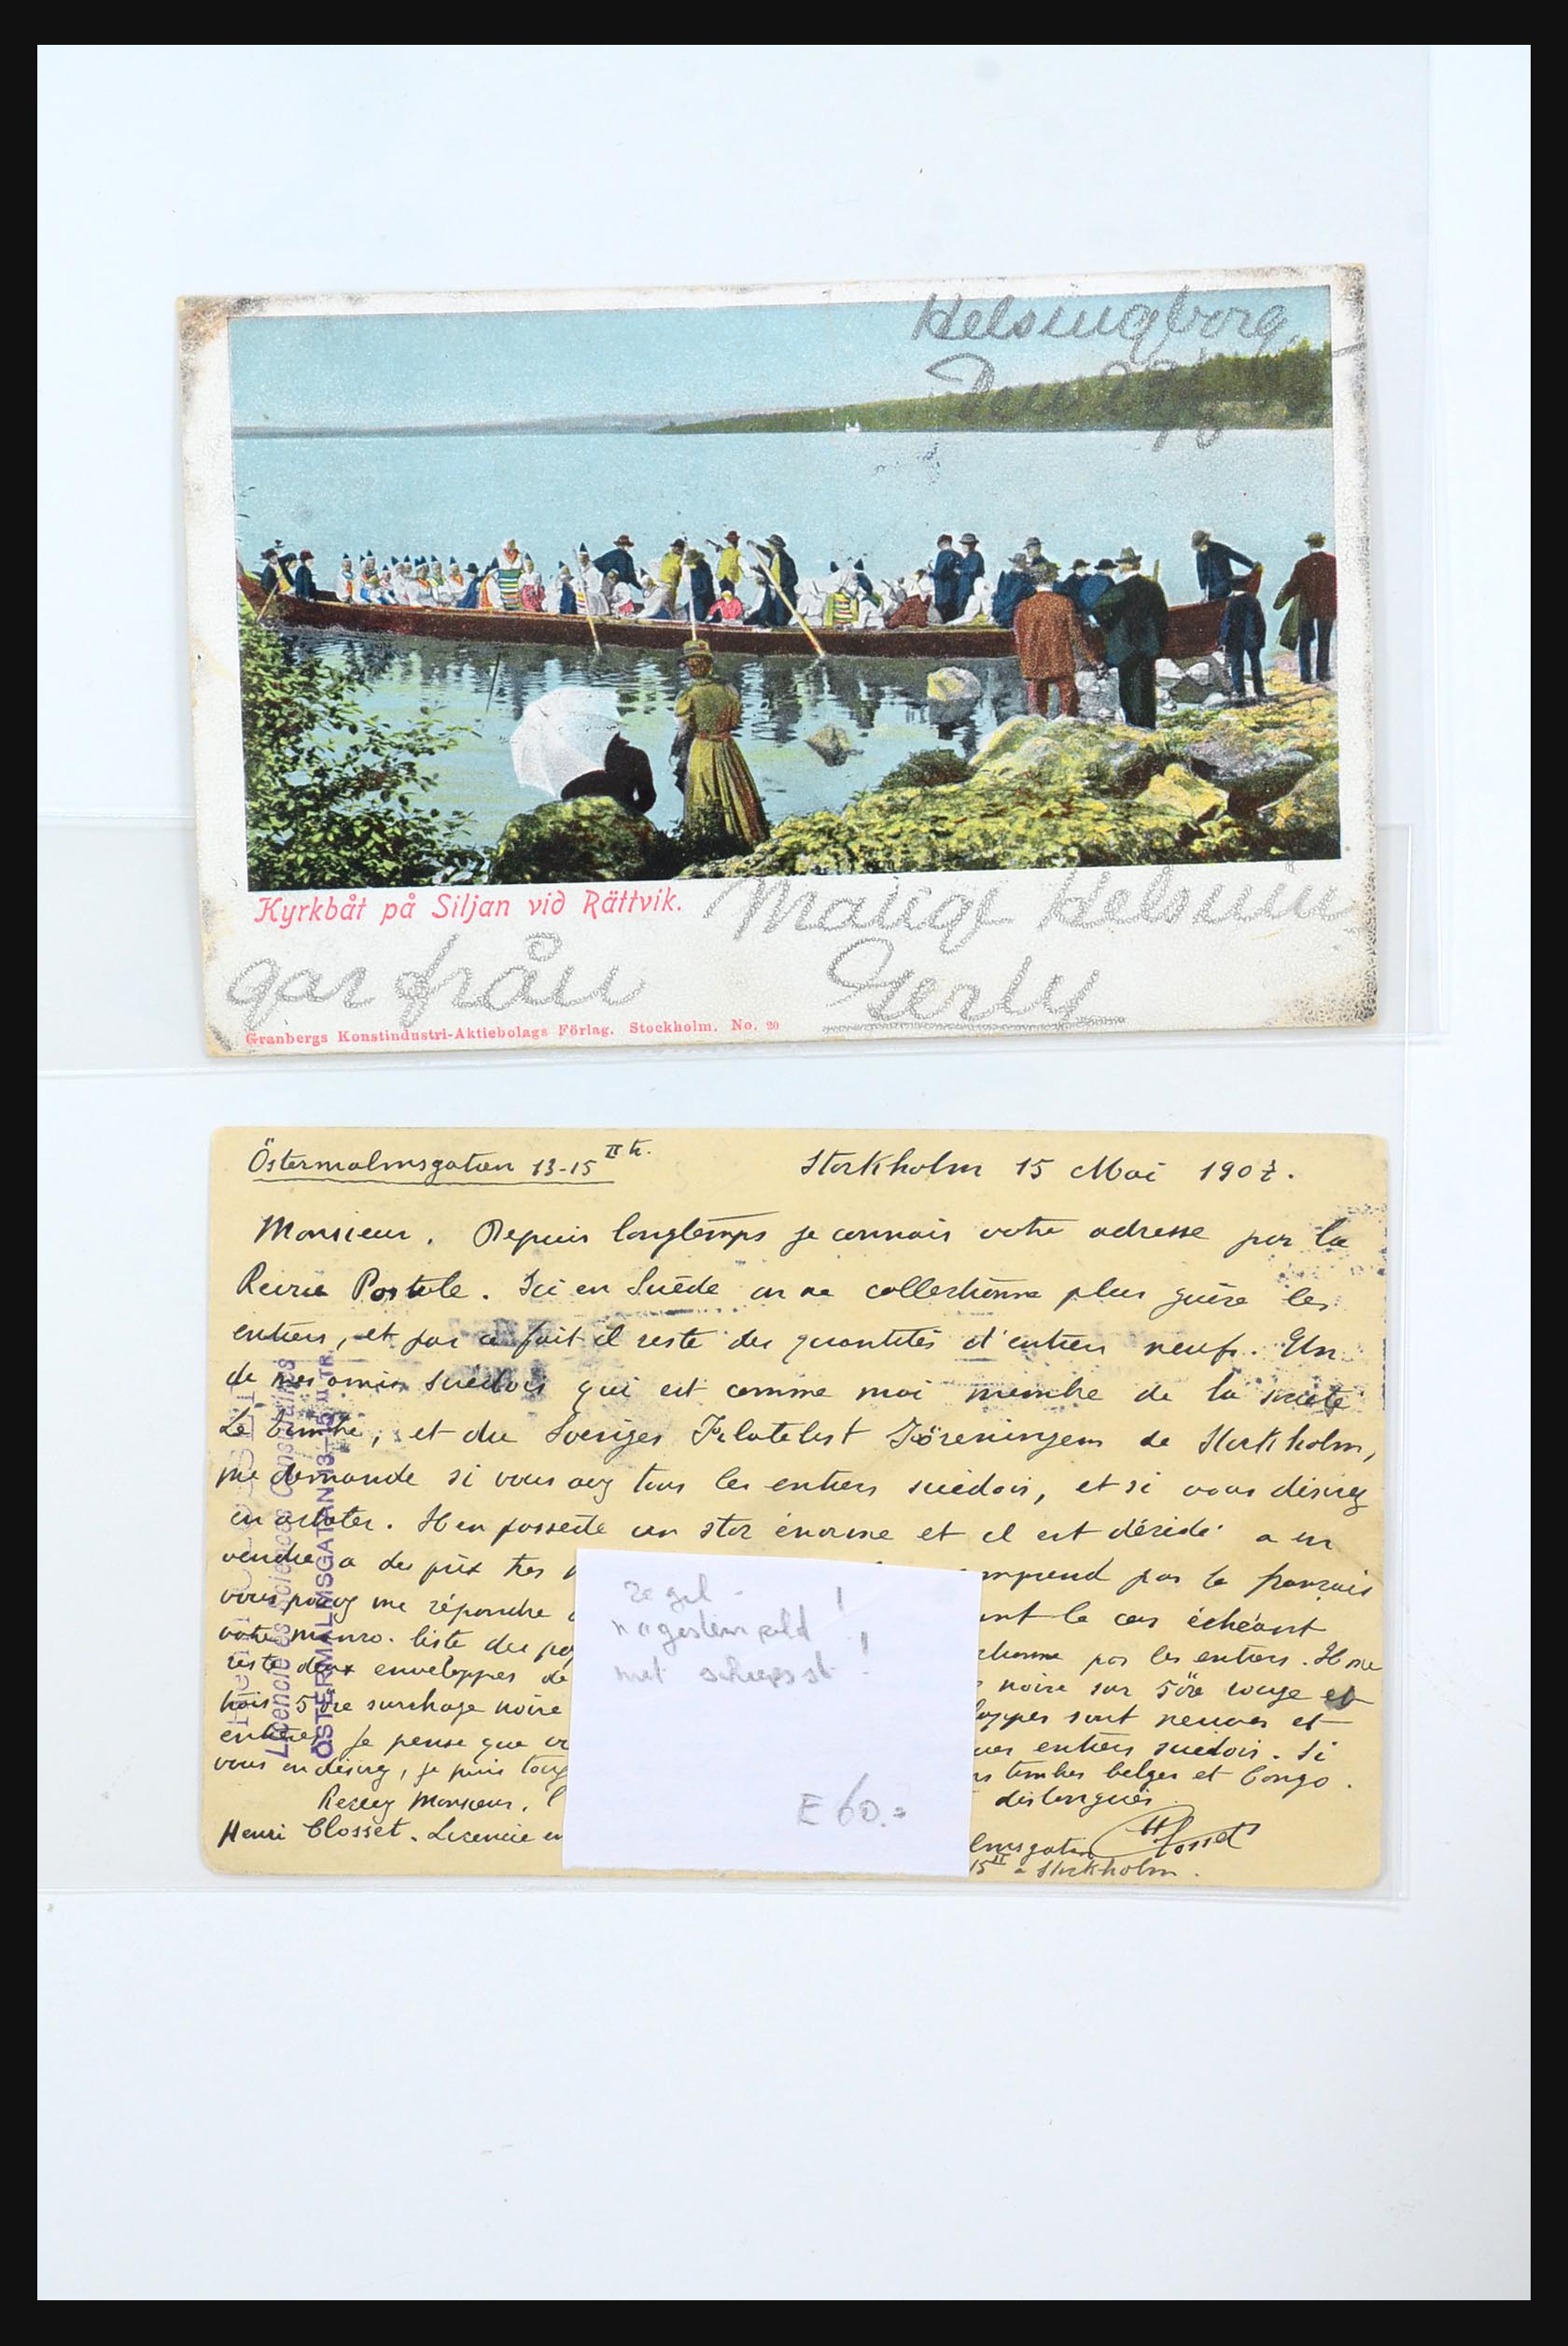 Helsingborg
Den 29/8
Kyrkbåt på Siljan vid Rättvik.
Månge Helsnin
gar från Gerly
Granbergs Konstindustri-Aktiebolags Förlag. Stockholm. No. 20
Östermalmsgatan 13-15 II tr.
Stockholm 15 Mai 1907.
Monsieur. Depuis longtemps je connais votre adresse par la
Revue Postale. Ici en Suède on ne collectionne plus guère les
entiers, et par ce fait il reste des quantités d'entiers neufs. Un
de mes amis suédois qui est comme moi membre de la société
Le timbre, et du Sveriges Filatelist Föreningen de Stockholm,
me demande si vous avez tous les entiers suédois, et si vous désirez
en acheter. Il en possède un stoc énorme et il est décidé a en
vendre a des prix tres
comprend pas le français
vous pouvez me répondre
le cas échéant
votre manco. liste des
pas les entiers. Il me
reste deux enveloppes de
noire sur 5öre rouge et
trois 5öre surchage noire
sont neuves et
entières. Je pense que
entiers suédois. Si
vous en désirez, je puis
timbres belges et Congo.
Recevez Monsieur,
distingués.
Henri Closset. Licencié en
HClosset
15 II a Stockholm.
Licencié es sciences Consulaires
ÖSTERMALMSGATAN 13-15 II TR.
zegel
nagestempeld !
met scheepsst !
E 60.=